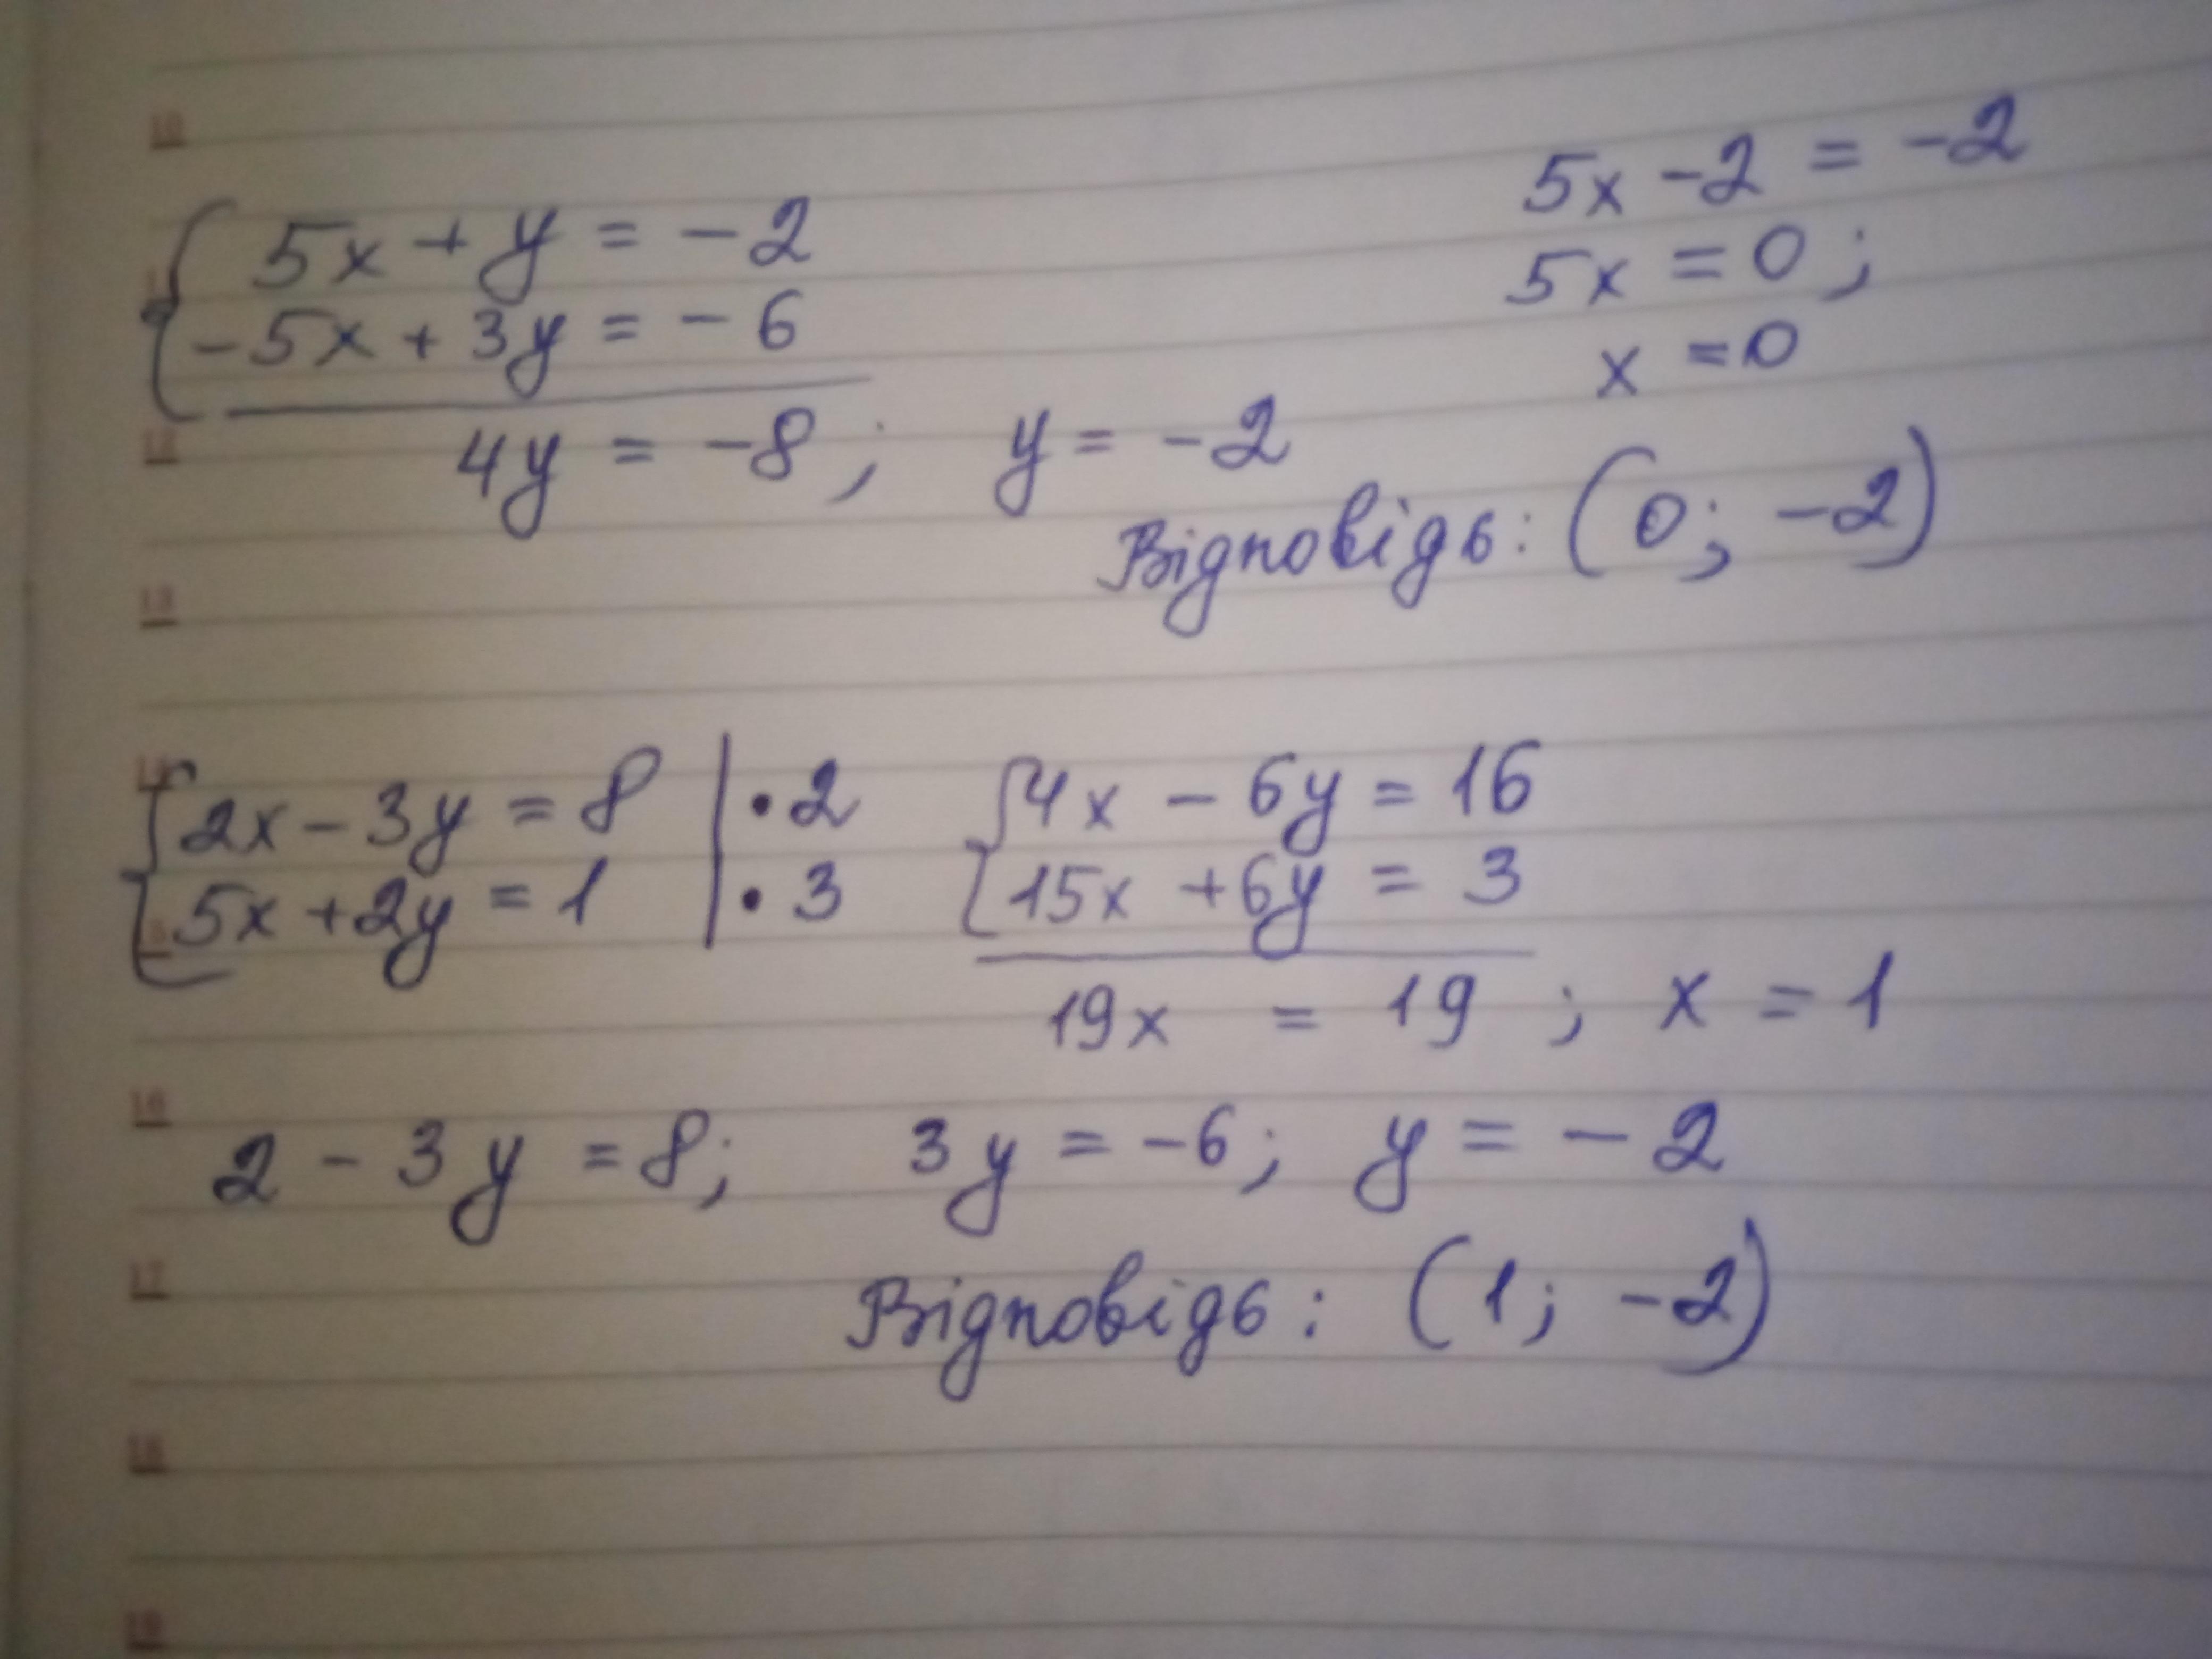 10
5x + y = -2
-5x + 3y = -6
4y = -8; y = -2
5x - 2 = -2
5x = 0;
x = 0
Відповідь: (0; -2)
12
13
2x - 3y = 8 | • 2
5x + 2y = 1 | • 3
4x - 6y = 16
15x + 6y = 3
19x = 19; x = 1
16
2 - 3y = 8; 3y = -6; y = -2
17
Відповідь: (1; -2)
18
19